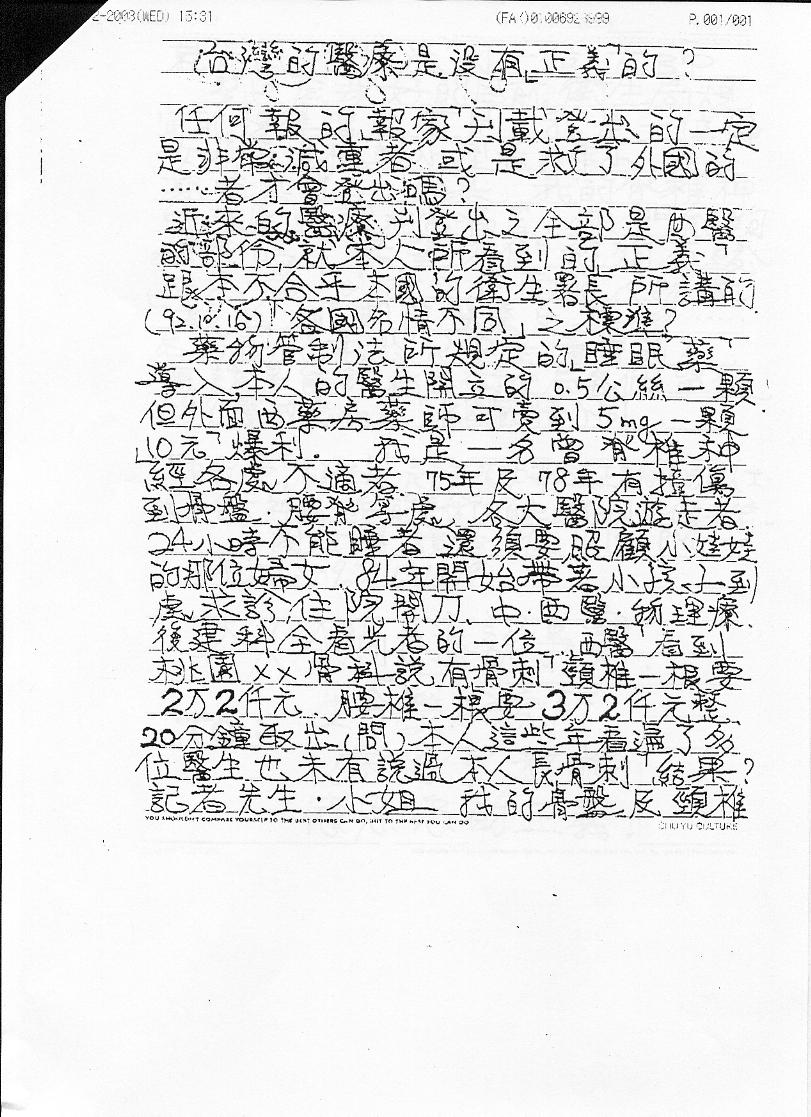 2-2003(WED) 15:31 (FA P.001/001
台灣的醫療是没有正義的？
任何報的報像刊載登出的一定
是非常減重者或是救了外國的
……者才會登出嗎？
近來的醫療刊登出之全部是西醫
的部份,就本人所看到的正義
跟本不合乎本國的衛生署長所講的
(92.10.16)各國名情不同」之標准？
藥物管制法所規定的睡眠藥
導人本人的醫生開立的0.5公絲一顆
但外面西藥房藥師可賣到5mg一顆
10元 爆利. 我是一名曾脊椎神
經各處不適者 75年及78年有撞傷
到骨盤.腰脊等處 各大醫院遊走者
24小時不能睡者還須要照顧小娃娃
的那位婦女.84年開始帶著小孩子到
處求診住院開刀.中.西醫.物理療.
後建科全看光者的一位 西醫看到
林北園XX骨科說有骨刺 頸椎一根要
2万2仟元.腰椎一根要3万2仟元整
20分鐘取出(問)本人這些年看遍了多
位醫生也未有說過本人長骨刺 結果？
記者先生.小姐 我的骨盤及頸椎
YOU SHOULDN'T COMPARE YOURSELF TO THE BEST OTHERS CAN DO, BUT TO THE BEST YOU CAN DO
CHUYU CULTURE